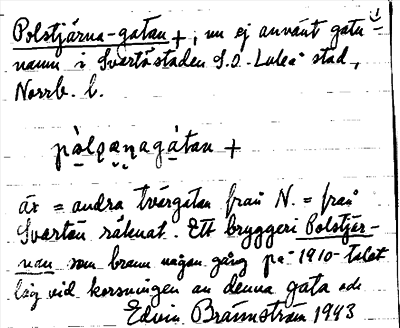 Polstjärna-gatan +, nu ej använt gatu=
namn i Svartöstaden S.O. Luleå stad,
Norrb. l.
pålsa̱nagátan +
är = andra tvärgatan från N. = från
Svartön räknat. Ett bryggeri Polstjär-
nan som brann någon gång på 1910-talet
låg vid korsningen av denna gata och
Edvin Brännström 1943